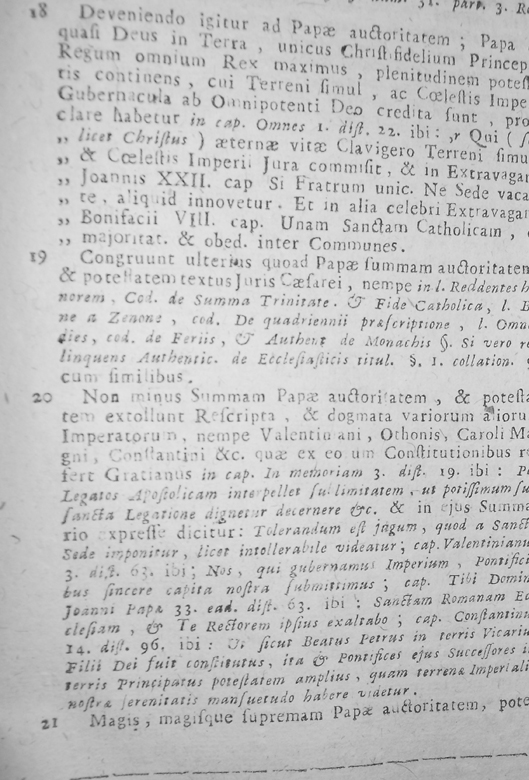 31. parr. 3. Re
18 Deveniendo igitur ad Papæ auctoritatem ; Papa
quaſi Deus in Terra , unicus Chriſtifidelium Princep
Regum omnium Rex maximus , plenitudinem poteſ
tis continens , cui Terreni ſimul , ac Cœleſtis Impe
Gubernacula ab Omnipotenti Deo credita ſunt , pro
clare habetur in cap. Omnes 1. diſt. 22. ibi : ,, Qui ( ſ
,, licet Chriſtus ) æternæ vitæ Clavigero Terreni ſimu
,, & Cœleſtis Imperii Jura commiſit , & in Extravagan
,, Joannis XXII. cap Si Fratrum unic. Ne Sede vaca
,, te , aliquid innovetur . Et in alia celebri Extravagan
,, Bonifacii VIII. cap. Unam Sanctam Catholicam ,
,, majoritat. & obed. inter Communes .
19 Congruunt ulterius quoad Papæ ſummam auctoritatem
& poteſtatem textus Juris Cæſarei , nempe in l. Reddentes h
norem , Cod. de Summa Trinitate . & Fide Catholica , l. B
ne a Zenone , cod. De quadriennii præſcriptione , l. Omn
dies , cod. de Feriis , & Authent de Monachis §. Si vero re
linquens Authentic. de Eccleſiaſticis titul. §. 1. collation. 9
cum ſimilibus .
20 Non minus Summam Papæ auctoritatem , & poteſta
tem extollunt Reſcripta , & dogmata variorum alioru
Imperatorum , nempe Valentiniani , Othonis, Caroli Ma
gni , Conſtantini &c. quæ ex eorum Conſtitutionibus re
fert Gratianus in cap. In memoriam 3. diſt. 19. ibi : Pe
Legatos Apoſtolicam interpellet ſublimitatem , ut potiſſimum ſu
ſancta Legatione dignetur decernere &c. & in ejus Summa
rio expreſſe dicitur : Tolerandum eſt jugum , quod a Sanct
Sede imponitur , licet intollerabile videatur ; cap. Valentinianu
3. diſt. 63. ibi ; Nos , qui gubernamus Imperium , Pontifici
bus ſincere capita noſtra ſubmittimus ; cap. Tibi Domin
Joanni Papæ 33. ead. diſt. 63. ibi : Sanctam Romanam Ec
cleſiam , & Te Rectorem ipſius exaltabo ; cap. Conſtantinu
14. diſt. 96. ibi : Ut ſicut Beatus Petrus in terris Vicariu
Filii Dei fuit conſtitutus , ita & Pontifices ejus Succeſſores i
terris Principatus poteſtatem amplius , quam terrenæ Imperiali
noſtræ ſerenitatis manſuetudo habere videtur .
21 Magis , magiſque ſupremam Papæ auctoritatem, pote